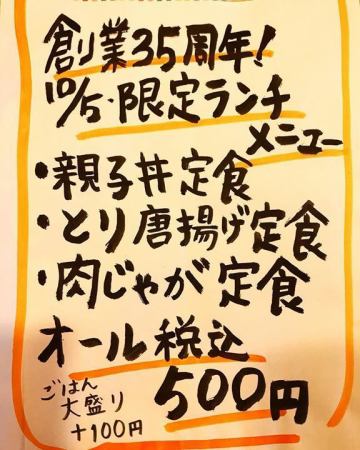 創業35周年!
10/5・限定ランチ
メニュー
・親子丼定食
・とり唐揚げ定食
・肉じゃが定食
オール税込
500円
ごはん
大盛り
+100円